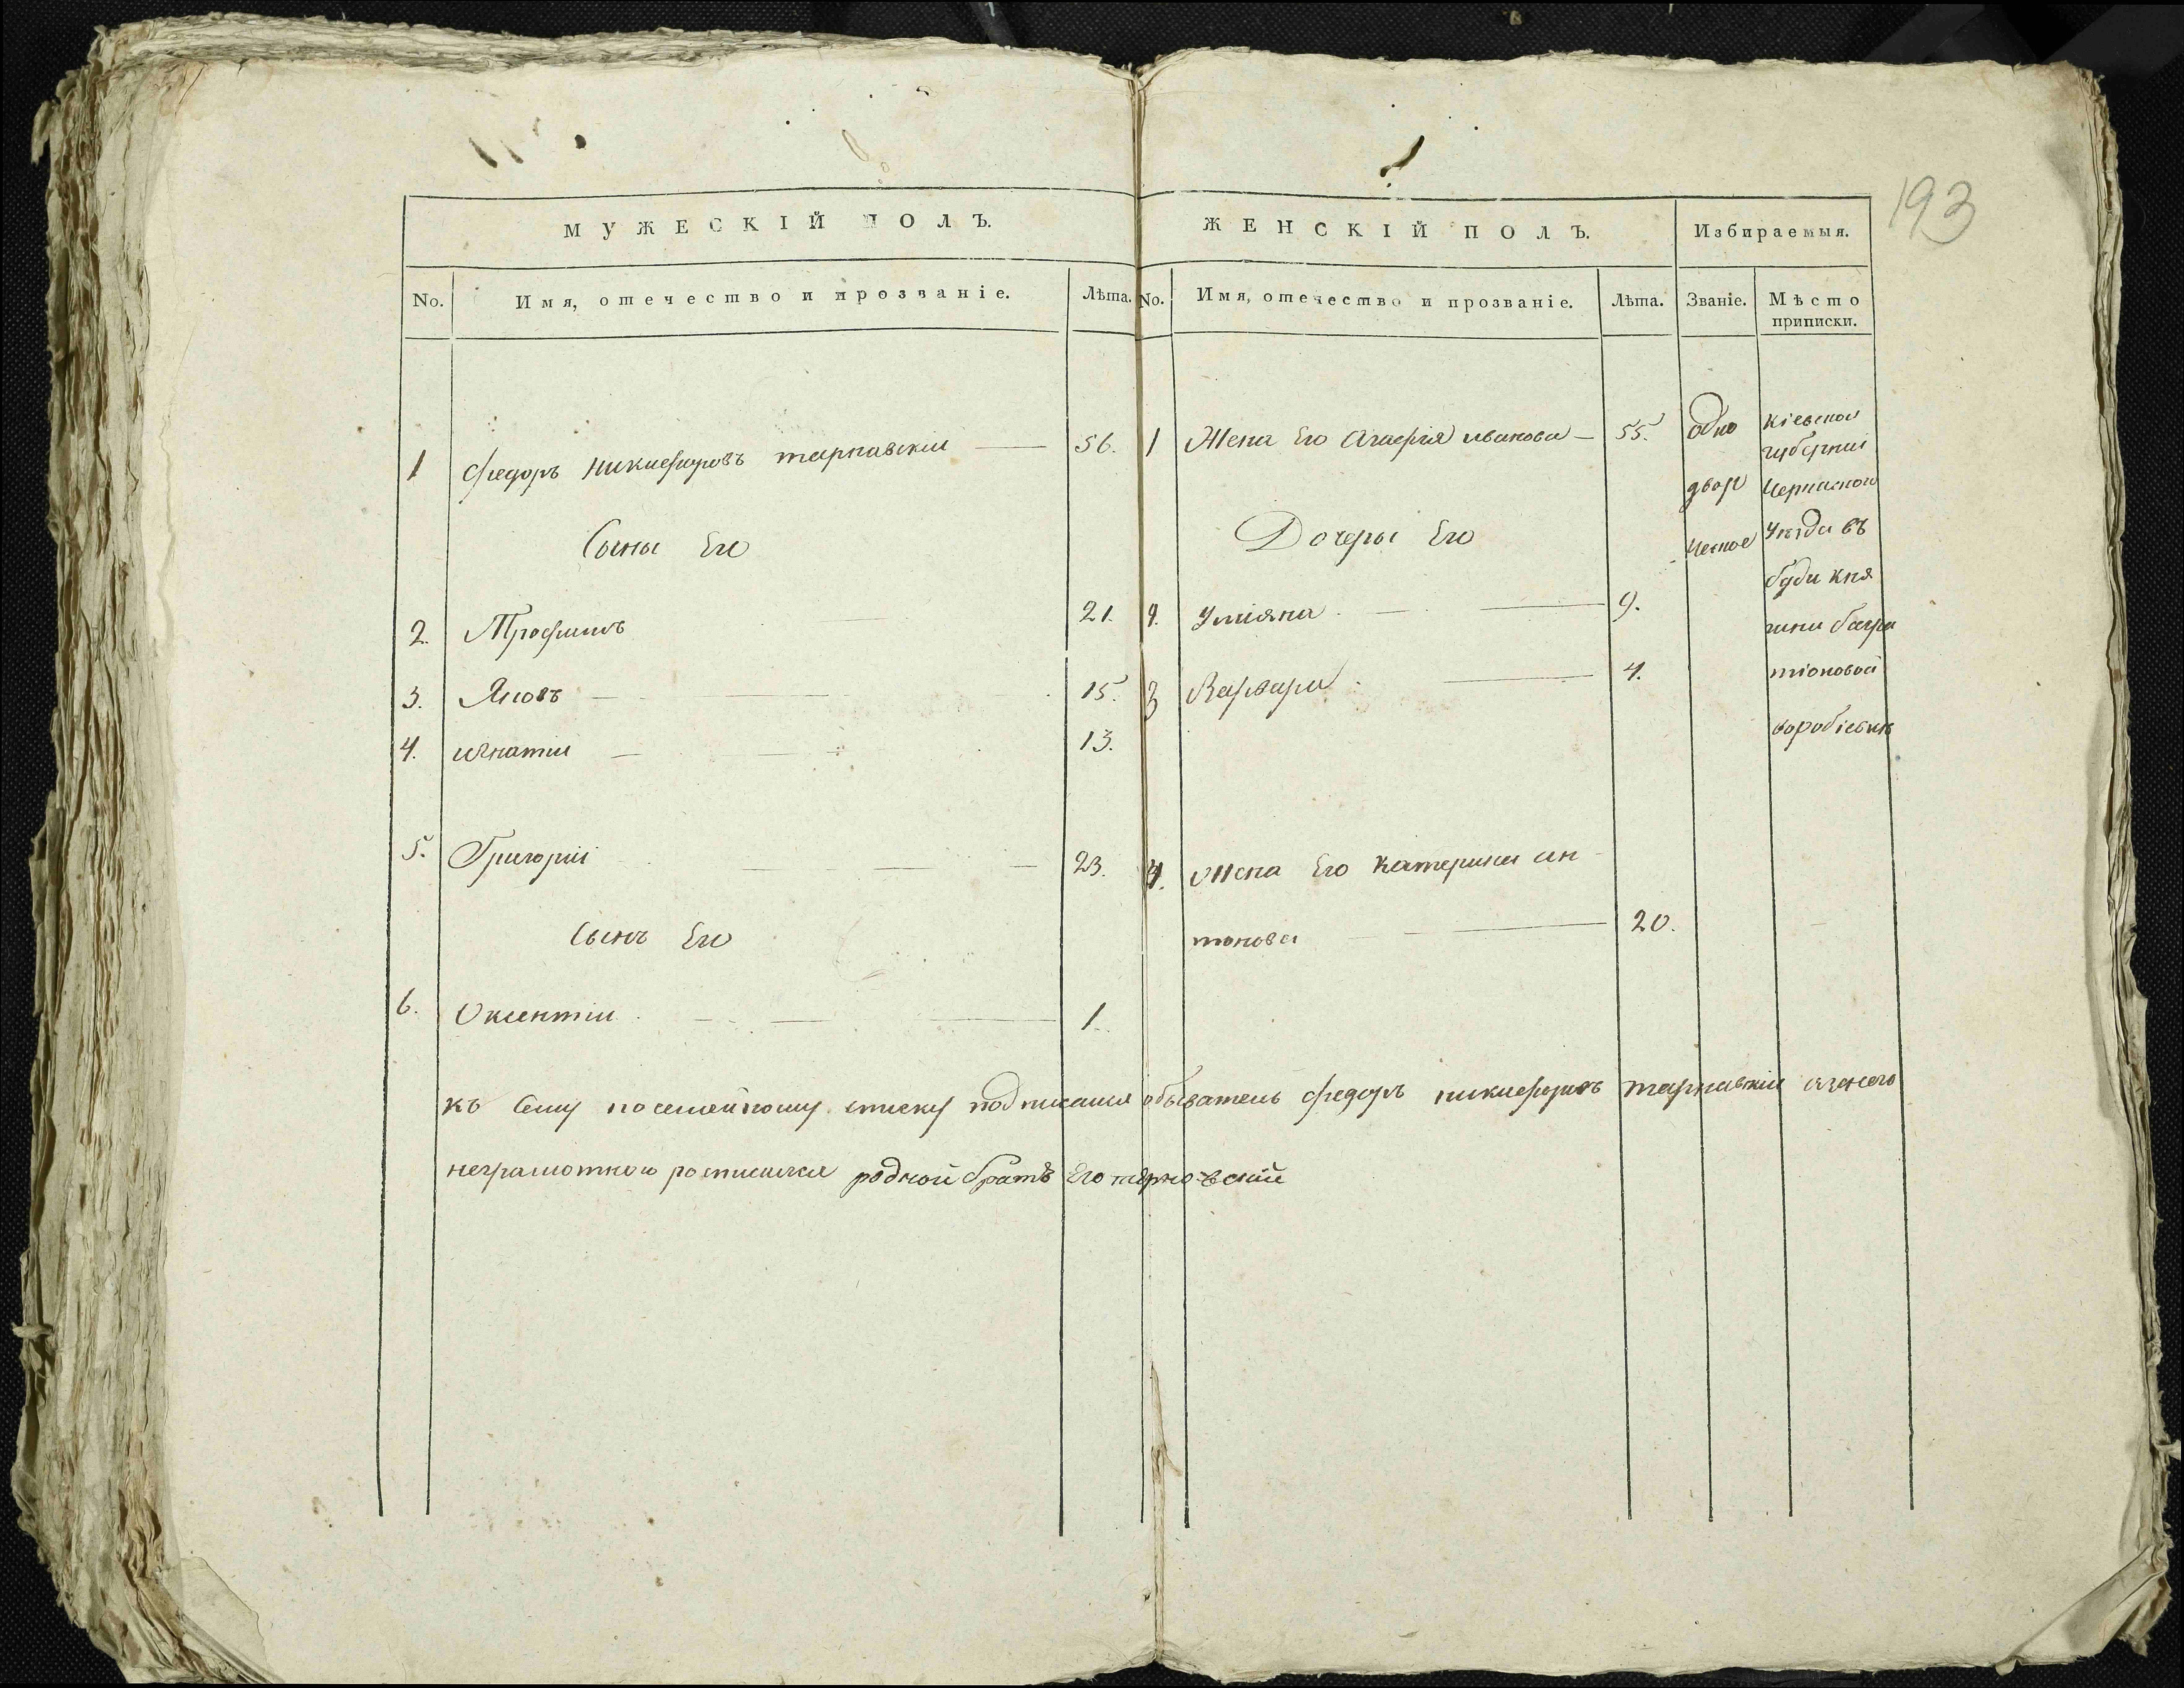 193
МУЖЕСКІЙ ПОЛЪ. ЖЕНСКІЙ ПОЛЪ. Избираемыя.
No. Имя, отечество и прозваніе. Лѣта. No. Имя, отечество и прозваніе. Лѣта. Званіе. Мѣсто приписки.
1 Федоръ Никифоровъ тарнавскій 56. 1 Жена Его Агафія иванова 55. Одно
двор
цовое
Кіевской
губерніи
Черкаского
уезда въ
буди кня
гини багра
тіоновой
воробіевкѣ
Сыны Его Дочеры Его
2. Трофимъ 21. 2. Улияна 9.
3. Яковъ 15. 3 Варвара 4.
4. игнатіи 13.
5. Григоріи 23. 4. Жена Его Катерина ан
Сынъ Его тонова 20.
6. Оксентіи 1
Къ Сему посемейному списку подписался обыватель федоръ никифоровъ тарнавскіи а за него
неграмотного росписался родной братъ Его тарновскій